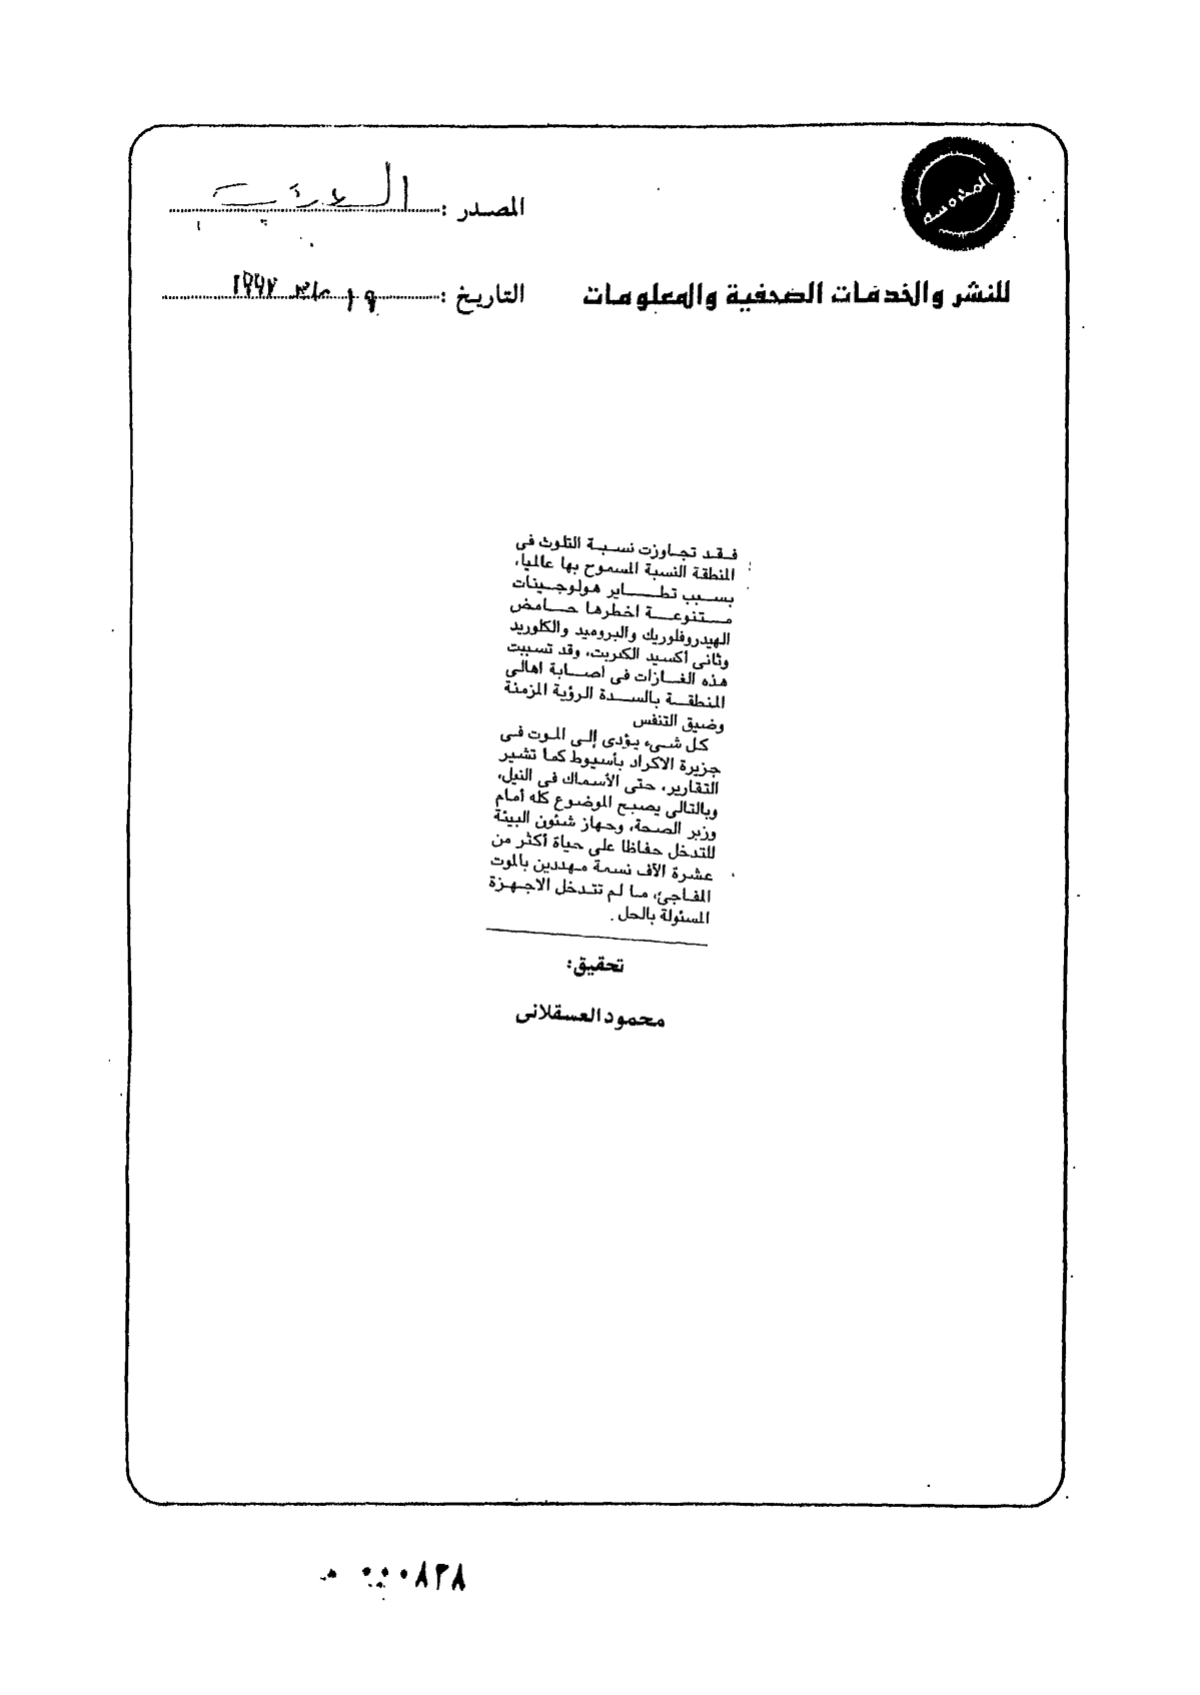 المصدر :
للنشر والخدمات الصحفية والمعلومات
التاريخ : ١٩ مايو ١٩٩٧
فقد تجاوزت نسبة التلوث فى
المنطقة النسبة المسموح بها عالميا،
بسبب تطاير هولوجينات
متنوعة اخطرها حامض
الهيدروفلوريك والبروميد والكلوريد
وثانى أكسيد الكبريت، وقد تسببت
هذه الغازات فى اصابة اهالى
المنطقة بالسدة الرؤية المزمنة
وضيق التنفس
كل شىء يؤدى إلى الموت فى
جزيرة الاكراد بأسيوط كما تشير
التقارير، حتى الأسماك فى النيل،
وبالتالى يصبح الموضوع كله أمام
وزير الصحة، وجهاز شئون البيئة
للتدخل حفاظا على حياة أكثر من
عشرة الآف نسمة مهددين بالموت
المفاجئ، ما لم تتدخل الاجهزة
المسئولة بالحل .
تحقيق:
محمود العسقلانى